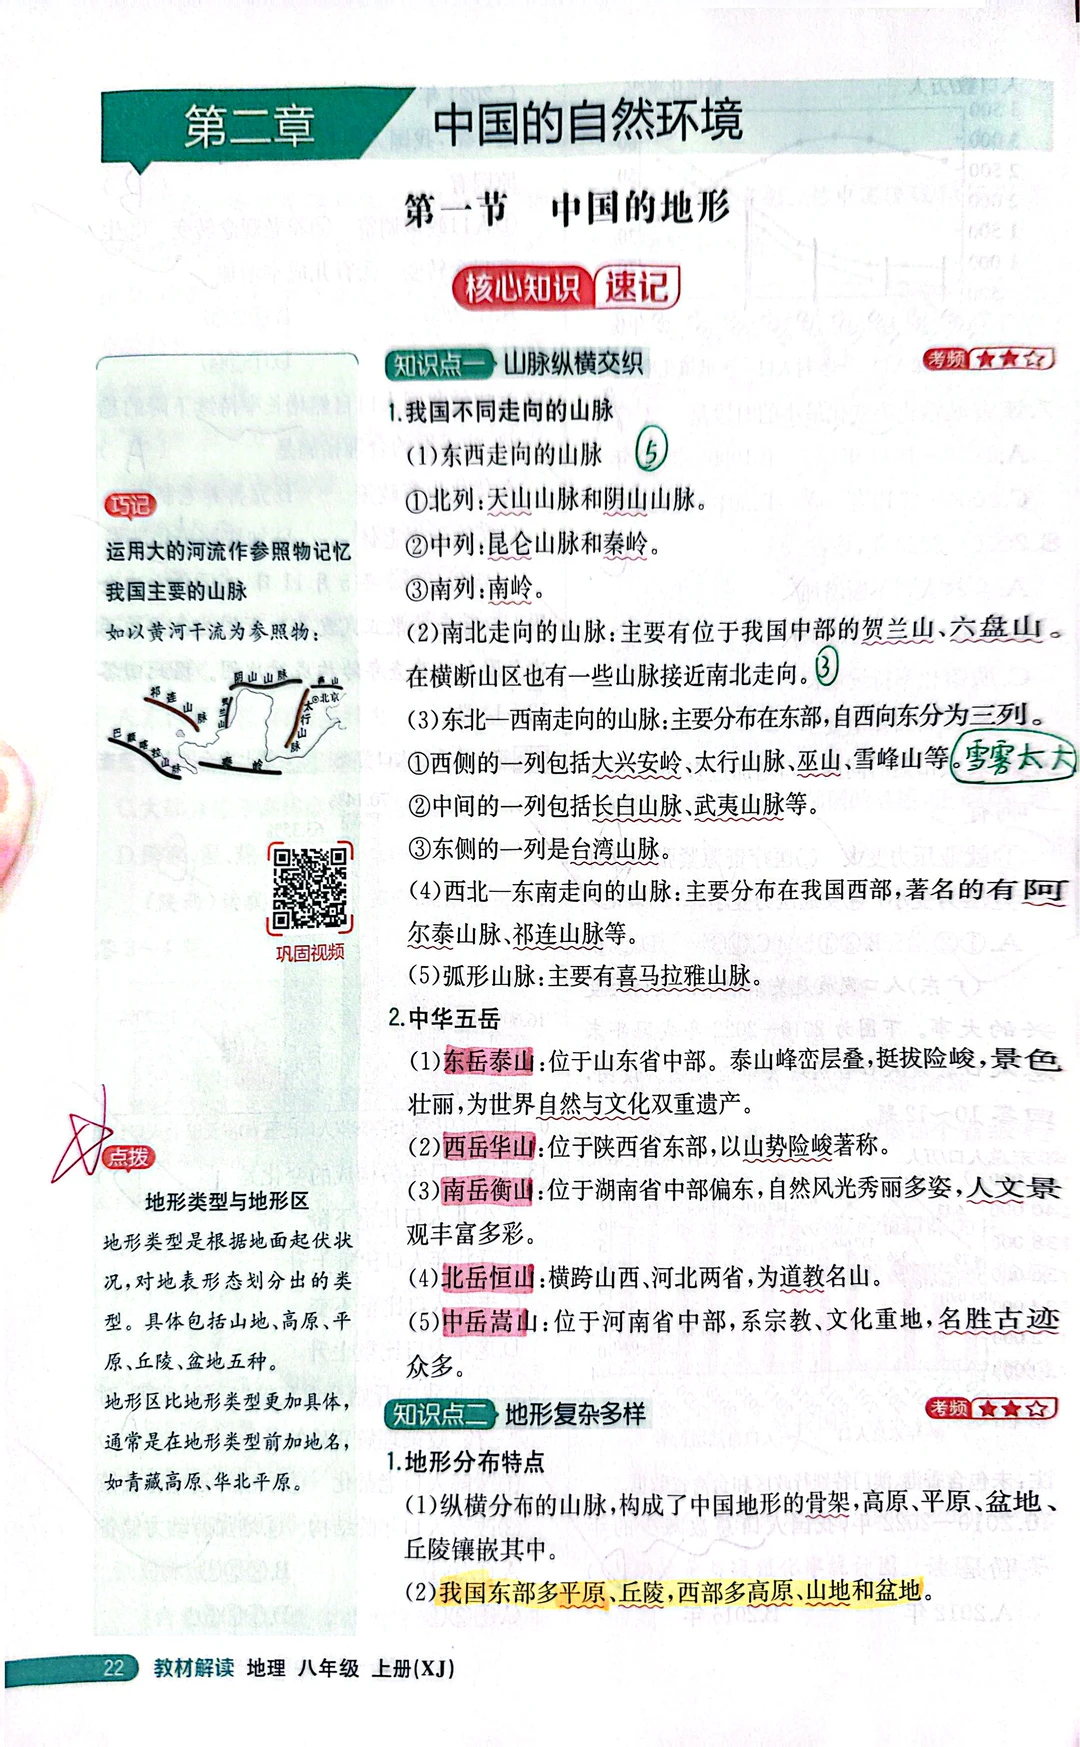 第二章 中国的自然环境
第一节 中国的地形
核心知识 速记
巧记
运用大的河流作参照物记忆
我国主要的山脉
如以黄河干流为参照物:
祁连山脉
阴山山脉
贺兰山
燕山
◎北京
太行山脉
巴颜喀拉山脉
秦岭
巩固视频
点拨
地形类型与地形区
地形类型是根据地面起伏状
况,对地表形态划分出的类
型。具体包括山地、高原、平
原、丘陵、盆地五种。
地形区比地形类型更加具体,
通常是在地形类型前加地名,
如青藏高原、华北平原。
知识点一 山脉纵横交织 考频★★☆
1.我国不同走向的山脉
(1)东西走向的山脉 5
①北列:天山山脉和阴山山脉。
②中列:昆仑山脉和秦岭。
③南列:南岭。
(2)南北走向的山脉:主要有位于我国中部的贺兰山、六盘山。
在横断山区也有一些山脉接近南北走向。③
(3)东北—西南走向的山脉:主要分布在东部,自西向东分为三列。
①西侧的一列包括大兴安岭、太行山脉、巫山、雪峰山等。雪雾太大
②中间的一列包括长白山脉、武夷山脉等。
③东侧的一列是台湾山脉。
(4)西北—东南走向的山脉:主要分布在我国西部,著名的有阿
尔泰山脉、祁连山脉等。
(5)弧形山脉:主要有喜马拉雅山脉。
2.中华五岳
(1)东岳泰山:位于山东省中部。泰山峰峦层叠,挺拔险峻,景色
壮丽,为世界自然与文化双重遗产。
(2)西岳华山:位于陕西省东部,以山势险峻著称。
(3)南岳衡山:位于湖南省中部偏东,自然风光秀丽多姿,人文景
观丰富多彩。
(4)北岳恒山:横跨山西、河北两省,为道教名山。
(5)中岳嵩山:位于河南省中部,系宗教、文化重地,名胜古迹
众多。
知识点二 地形复杂多样 考频★★☆
1.地形分布特点
(1)纵横分布的山脉,构成了中国地形的骨架,高原、平原、盆地、
丘陵镶嵌其中。
(2)我国东部多平原、丘陵,西部多高原、山地和盆地。
22 教材解读 地理 八年级 上册(XJ)